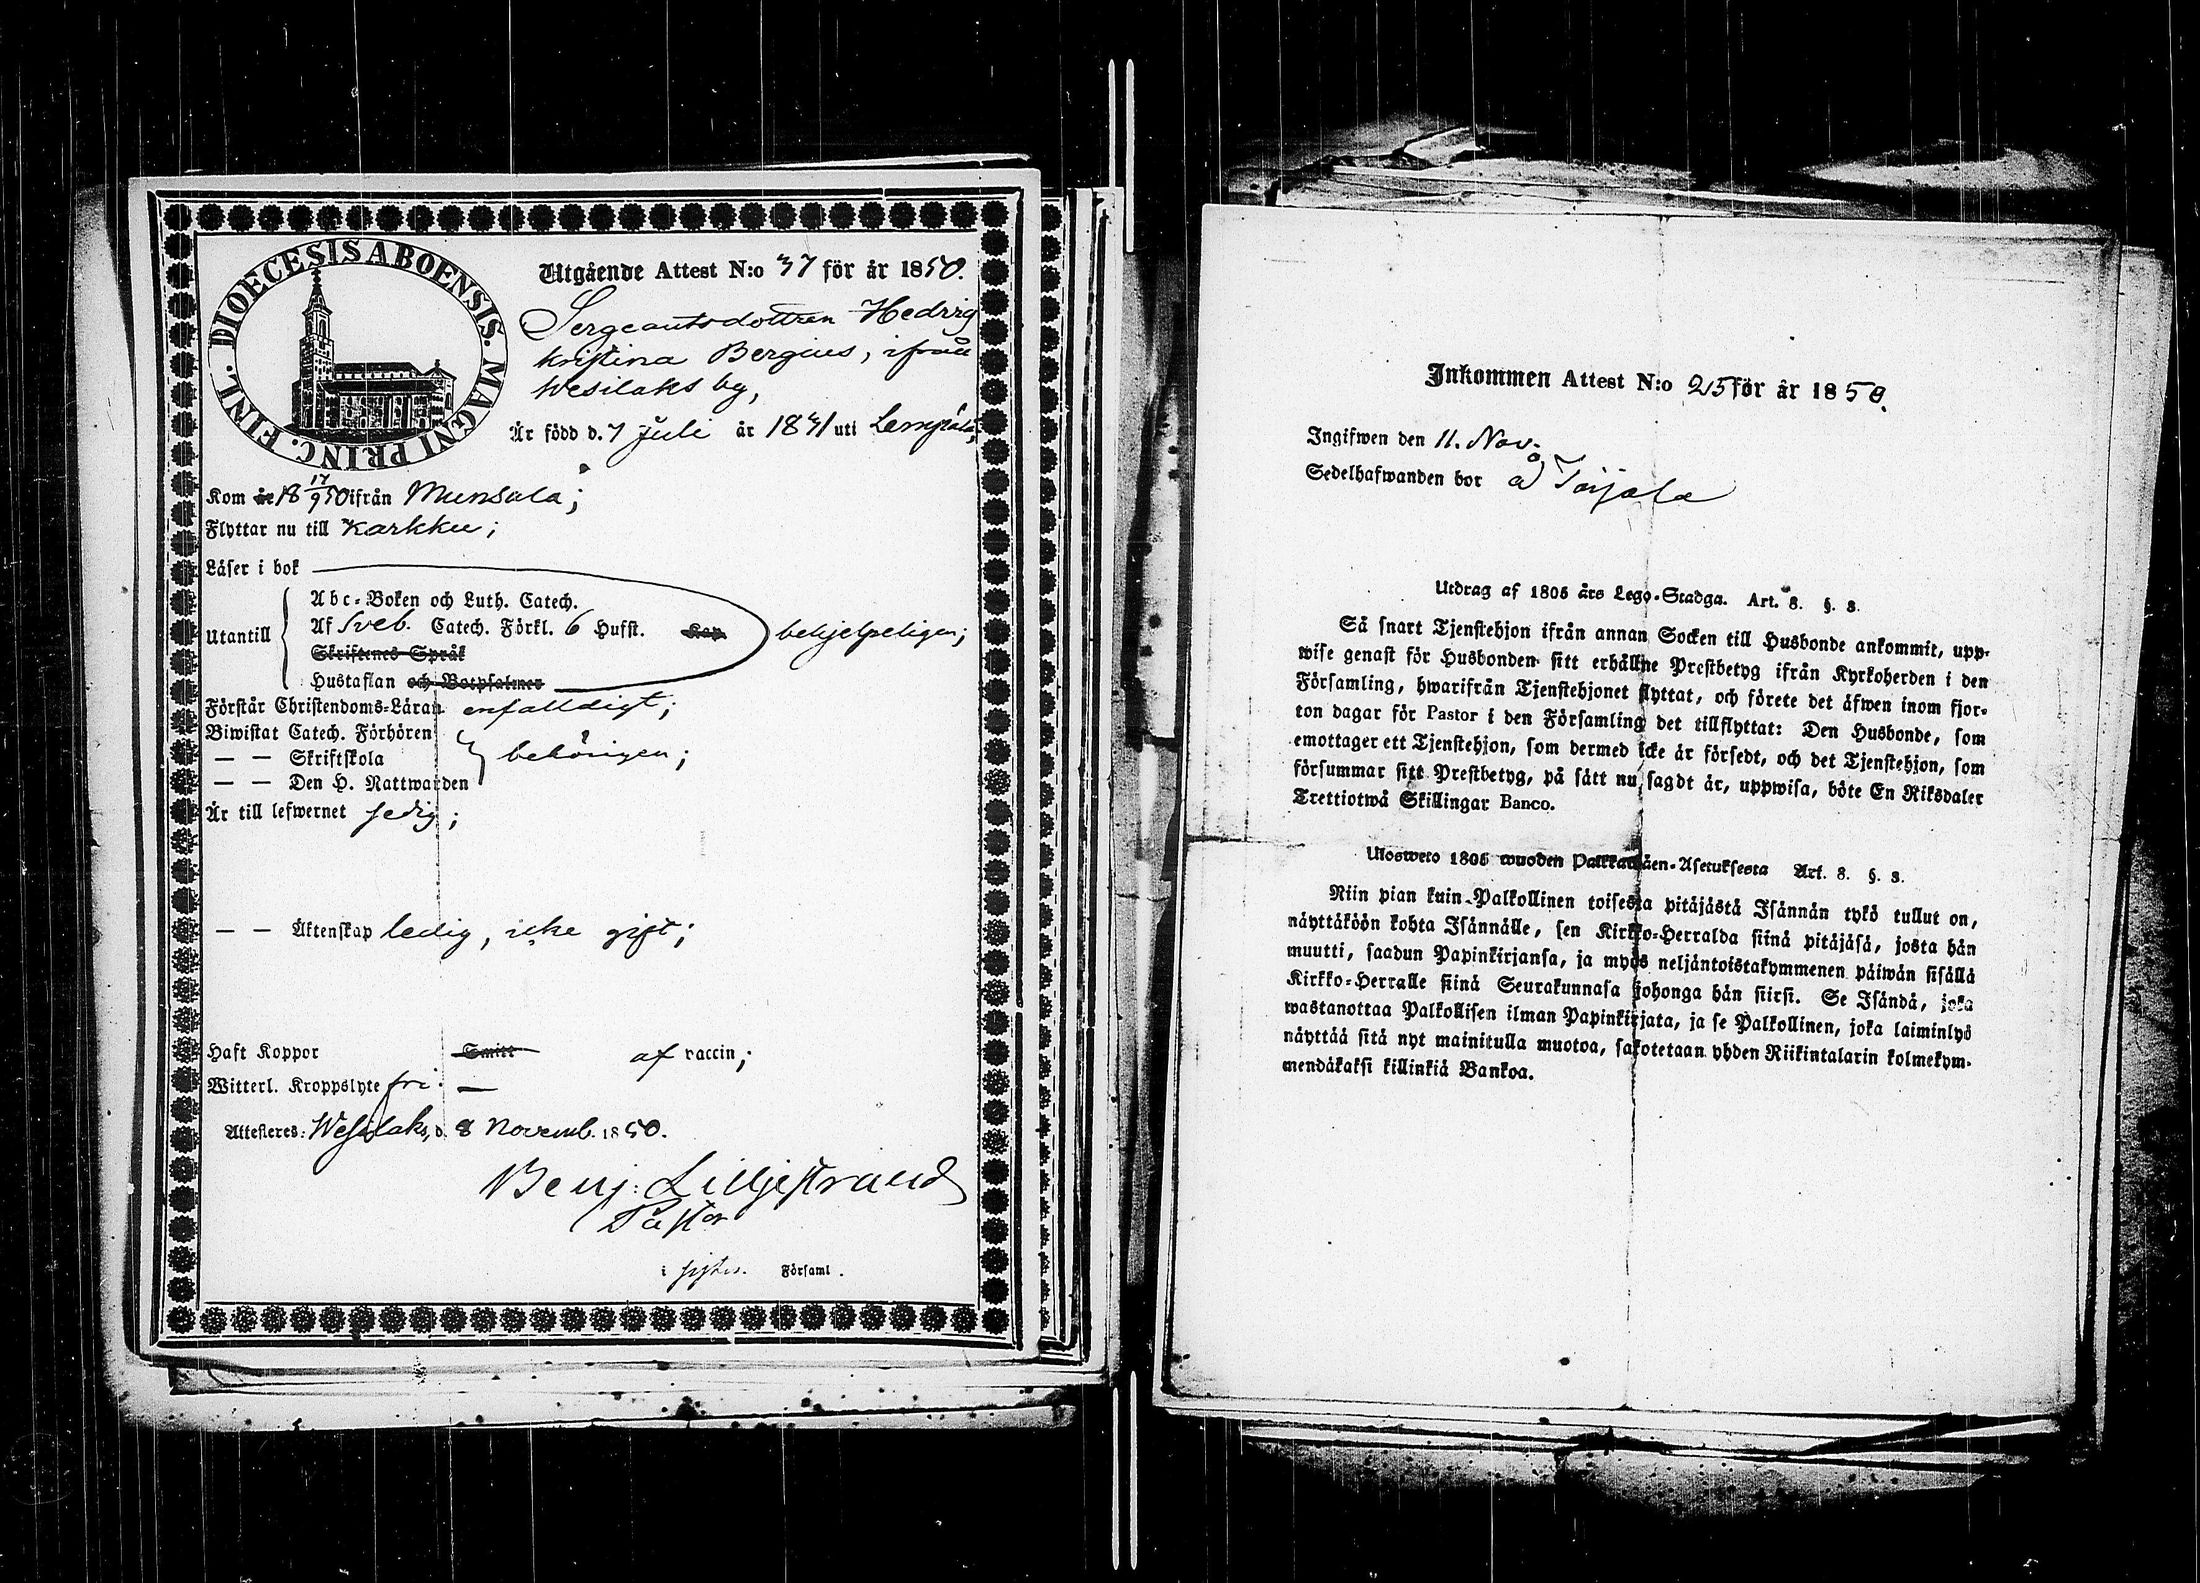 DIOECESIS ABOENSIS. MAGNI PRINC. FINL.
Utgående Attest N:o 37 för år 1850.
Sergeantsdottren Hedvig
Kristina Bergius, ifrån
Wesilaks by,
Är född d. 7 Juli år 1831 uti Lempäla,
Kom år 18 17/9 50 ifrån Munsala;
Flyttar nu till Karkku;
Läser i bok
Utantill
Abc-Boken och Luth. Catech.
Af Sveb. Catech. Förkl. 6 Hufst. Kap.
Skriftenes Språk
Hustaflan och Botpsalmer
behjelpeligen;
Förstår Christendoms-Läran enfaldigt;
Biwistat Catech. Förhören
— — Skriftskola
— — Den H. Nattwarden
behörigen;
Är till lefwernet sedig;
— — Äktenskap ledig, icke gift;
Haft Koppor Smitt af vaccin;
Witterl. Kroppslyte fri. —
Attesteres: Wesilaks, d. 8 Novemb. 1850.
Benj: Lilljestrand
Pastor
i Församl.
Inkommen Attest N:o 25 för år 1850.
Ingifwen den 11. Nov.
Sedelhafwanden bor å
Utdrag af 1805 års Lego-Stadga. Art. 8. §. 3.
Så snart Tjenstehjon ifrån annan Socken till Husbonde ankommit, upp-
wise genast för Husbonden sitt erhållne Prestbetyg ifrån Kyrkoherden i den
Församling, hwarifrån Tjenstehjonet flyttat, och förete det äfwen inom fjor-
ton dagar för Pastor i den Församling det tillflyttat: Den Husbonde, som
emottager ett Tjenstehjon, som dermed icke är försedt, och det Tjenstehjon, som
försummar sitt Prestbetyg, på sätt nu sagdt är, uppwisa, böte En Riksdaler
Trettiotwå Skillingar Banco.
Ulosweto 1805 wuoden Palkkawäen-Asetuksesta Art. 8. §. 3.
Niin pian kuin Palkollinen toisesta pitäjästä Isännän tykö tullut on,
näyttäköön kohta Isännälle, sen Kirkko-Herralda siinä pitäjäsä, josta hän
muutti, saadun Papinkirjansa, ja myös neljäntoistakymmenen päiwän sisällä
Kirkko-Herralle siinä Seurakunnasa johonga hän siirsi. Se Isändä, joka
wastanottaa Palkollisen ilman Papinkirjata, ja se Palkollinen, joka laiminlyö
näyttää sitä nyt mainitulla muotoa, sakotetaan yhden Riikintalarin kolmekym-
mendäkaksi killinkiä Bankoa.